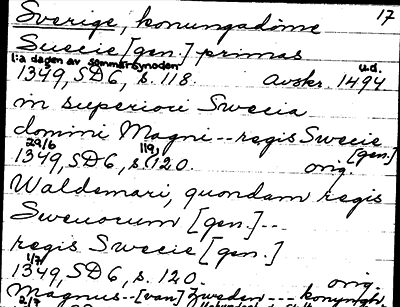 17
Sverige, konungadöme
Suecie [gen.] primas
1:a dagen av sommarsynoden u.d.
1349, SD6, s. 118. Avskr. 1494
in superiori Swecia
domini Magni -- regis Swecie [gen.]
29/6 119,
1349, SD6, s. 120. orig.
Waldemari, quondam regis
Sweuorum [gen.] ---
regis Swecie [gen.]
1/7
1349, SD6, s. 120. orig.
Magnus -- [van] Zweden --- konyngh
2/7